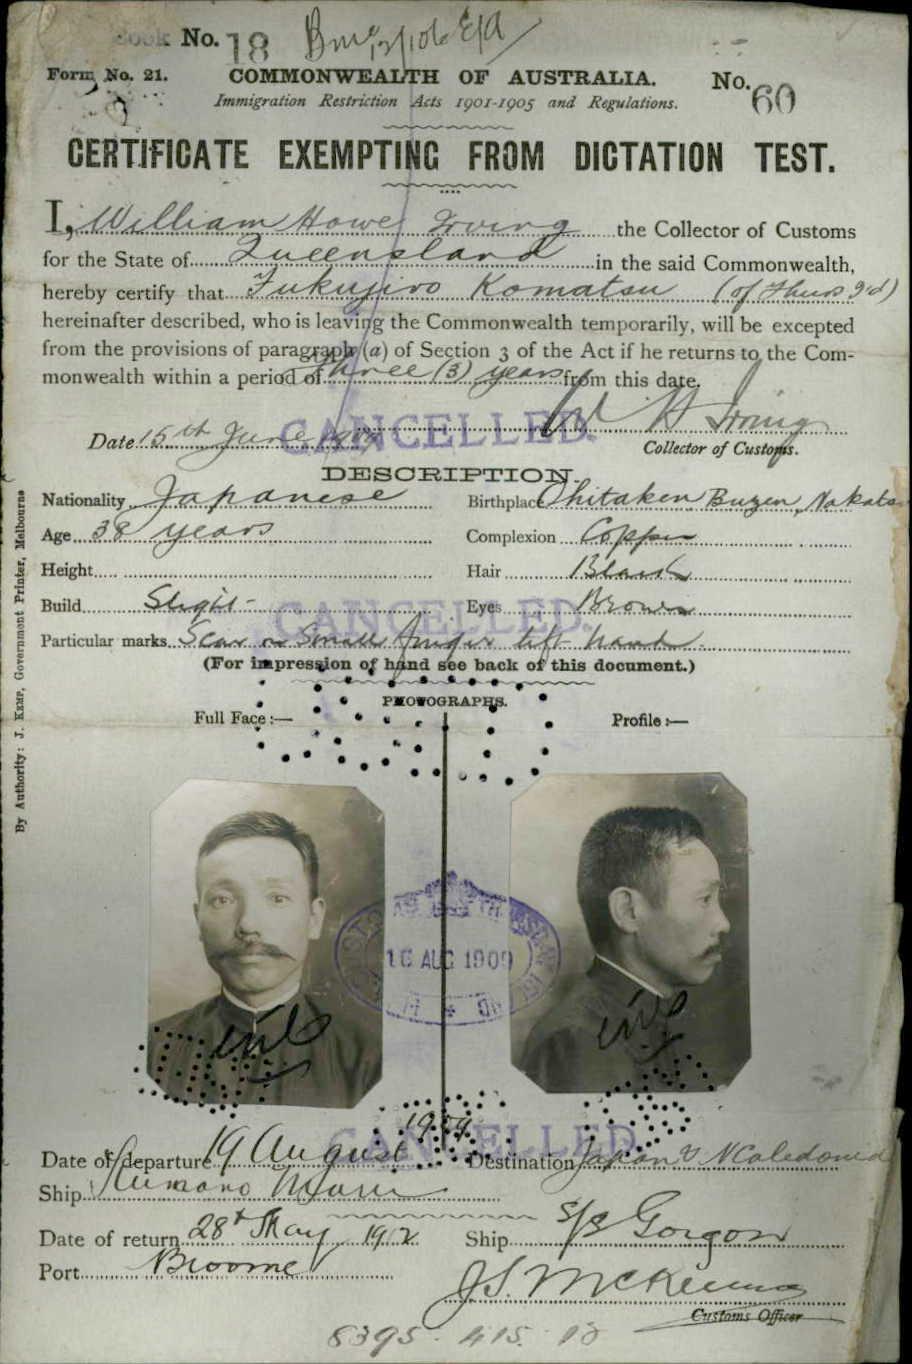 Book No. 18
Form No. 21.
COMMONWEALTH OF AUSTRALIA.
No. 60
Immigration Restriction Acts 1901-1905 and Regulations.
CERTIFICATE EXEMPTING FROM DICTATION TEST.
I, William Howe Irving the Collector of Customs
for the State of Queensland in the said Commonwealth,
hereby certify that Fukujiro Komatsu (of Thurs Id)
hereinafter described, who is leaving the Commonwealth temporarily, will be excepted
from the provisions of paragraph (a) of Section 3 of the Act if he returns to the Com-
monwealth within a period of Three (3) years from this date.
W H Irving
Date 15th June 1909
CANCELLED.
Collector of Customs.
DESCRIPTION.
Nationality Japanese Birthplace Buzen, Nakatsu
Age 38 years Complexion Copper
Height Hair Black
Build Slight Eyes Brown
CANCELLED.
Particular marks Scar on small finger left hand.
(For impression of hand see back of this document.)
PHOTOGRAPHS.
Full Face :— Profile :—
By Authority: J. Kemp, Government Printer, Melbourne
16 AUG 1909
CANCELLED
Date of departure 19 August 1909 Destination Japan & N Caledonia
Ship Kumano Maru
Date of return 28th May 1912 Ship s/s Gorgon
Port Broome
J.S. McKenna
Customs Officer